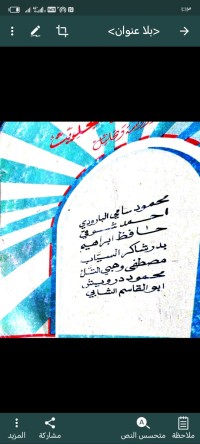 <بلا عنوان>
محمود سامي البارودي
احمد شوقي
حافظ ابراهيم
بدر شاكر السياب
مصطفى وهبي التل
محمود درويش
ابو القاسم الشابي
ملاحظة
متحسس النص
مشاركة
المزيد